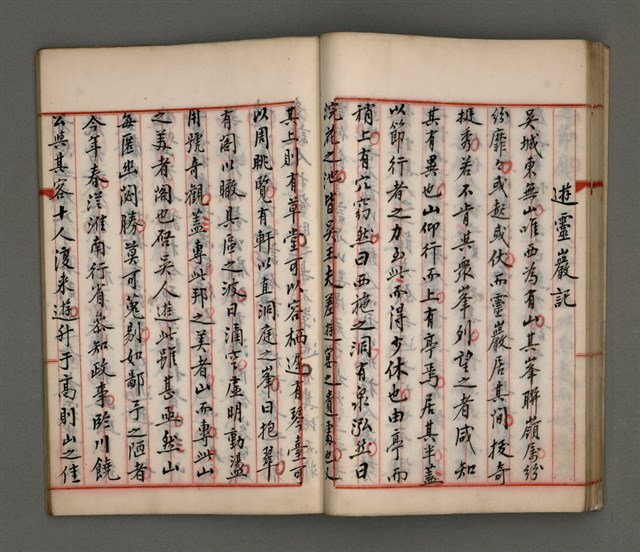 遊靈巖記
吳城東無山唯西為有山其峯聯嶺屬紛
紛靡〻或起或伏而靈巖居其間拔奇
挺秀若不肯其眾峯列望之者咸知
其有異也山仰行而上有亭焉居其半蓋
以節行者之力至此而得少休也由亭而
稍上有穴窈然曰西施之洞有泉泓然曰
浣花之池皆吳王夫差遊宴之遺處也又
其上則有草堂可以容栖遲有琴臺可
以周眺覽有軒以直洞庭之峯曰抱翠
有閣以瞰具區之波曰涵空虛明動盪
用號奇觀蓋專此邦之美者山而專此山
之美者閣也啓吳人遊此雖甚亟然山
每匿幽閟勝莫可蒐剔如鄙予之陋者
今年春從淮南行省叅知政事臨川饒
公與其客十人復來遊升于高則山之佳